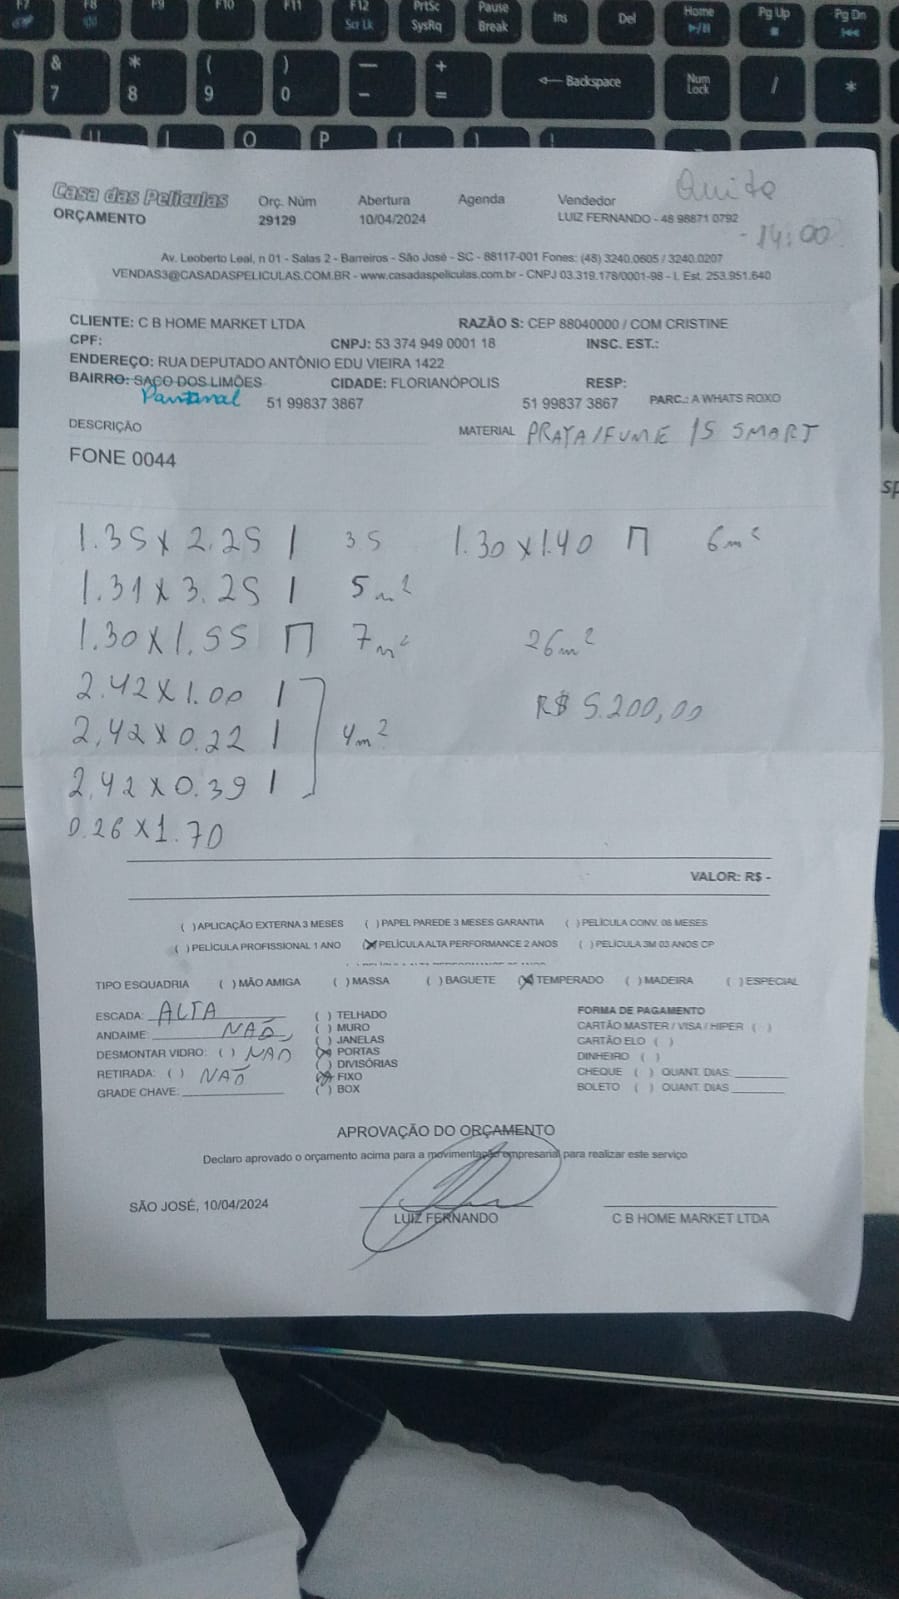 F7 F8 F9 F10 F11 F12 PrtSc Pause Ins Del Home Pg Up Pg Dn
Scr Lk SysRq Break
& * ( ) — +
7 8 9 0 – = Backspace Num Lock / *
U I O P
Casa das Películas Orç. Núm Abertura Agenda Vendedor Quita
ORÇAMENTO 29129 10/04/2024 LUIZ FERNANDO - 48 98871 0792
- 14:00
Av. Leoberto Leal, n 01 - Salas 2 - Barreiros - São José - SC - 88117-001 Fones: (48) 3240.0605 / 3240.0207
VENDAS3@CASADASPELICULAS.COM.BR - www.casadaspeliculas.com.br - CNPJ 03.319.178/0001-98 - I. Est. 253.951.640
CLIENTE: C B HOME MARKET LTDA RAZÃO S: CEP 88040000 / COM CRISTINE
CPF: CNPJ: 53 374 949 0001 18 INSC. EST.:
ENDEREÇO: RUA DEPUTADO ANTÔNIO EDU VIEIRA 1422
BAIRRO: SACO DOS LIMÕES CIDADE: FLORIANÓPOLIS RESP:
Pantanal 51 99837 3867 51 99837 3867 PARC.: A WHATS ROXO
DESCRIÇÃO MATERIAL PRATA/FUME 15 SMART
FONE 0044
1.35 x 2.25 | 35 1.30 x 1.40 Π 6m²
1.31 x 3.25 | 5m²
1.30 x 1.55 Π 7m² 26m²
2.42 x 1.00 |
R$ 5.200,00
2,42 x 0.22 | 4m²
2,42 x 0.39 |
0.26 x 1.70
VALOR: R$ -
( ) APLICAÇÃO EXTERNA 3 MESES ( ) PAPEL PAREDE 3 MESES GARANTIA ( ) PELÍCULA CONV. 06 MESES
( ) PELÍCULA PROFISSIONAL 1 ANO (X) PELÍCULA ALTA PERFORMANCE 2 ANOS ( ) PELÍCULA 3M 03 ANOS CP
TIPO ESQUADRIA ( ) MÃO AMIGA ( ) MASSA ( ) BAGUETE (X) TEMPERADO ( ) MADEIRA ( ) ESPECIAL
ESCADA: ALTA ( ) TELHADO FORMA DE PAGAMENTO
ANDAIME: NÃO ( ) MURO CARTÃO MASTER / VISA / HIPER ( )
( ) JANELAS CARTÃO ELO ( )
DESMONTAR VIDRO: ( ) NÃO (X) PORTAS DINHEIRO ( )
( ) DIVISÓRIAS
RETIRADA: ( ) NÃO (X) FIXO CHEQUE ( ) QUANT. DIAS:
GRADE CHAVE: ( ) BOX BOLETO ( ) QUANT. DIAS
APROVAÇÃO DO ORÇAMENTO
Declaro aprovado o orçamento acima para a movimentação empresarial para realizar este serviço
SÃO JOSÉ, 10/04/2024
LUIZ FERNANDO C B HOME MARKET LTDA